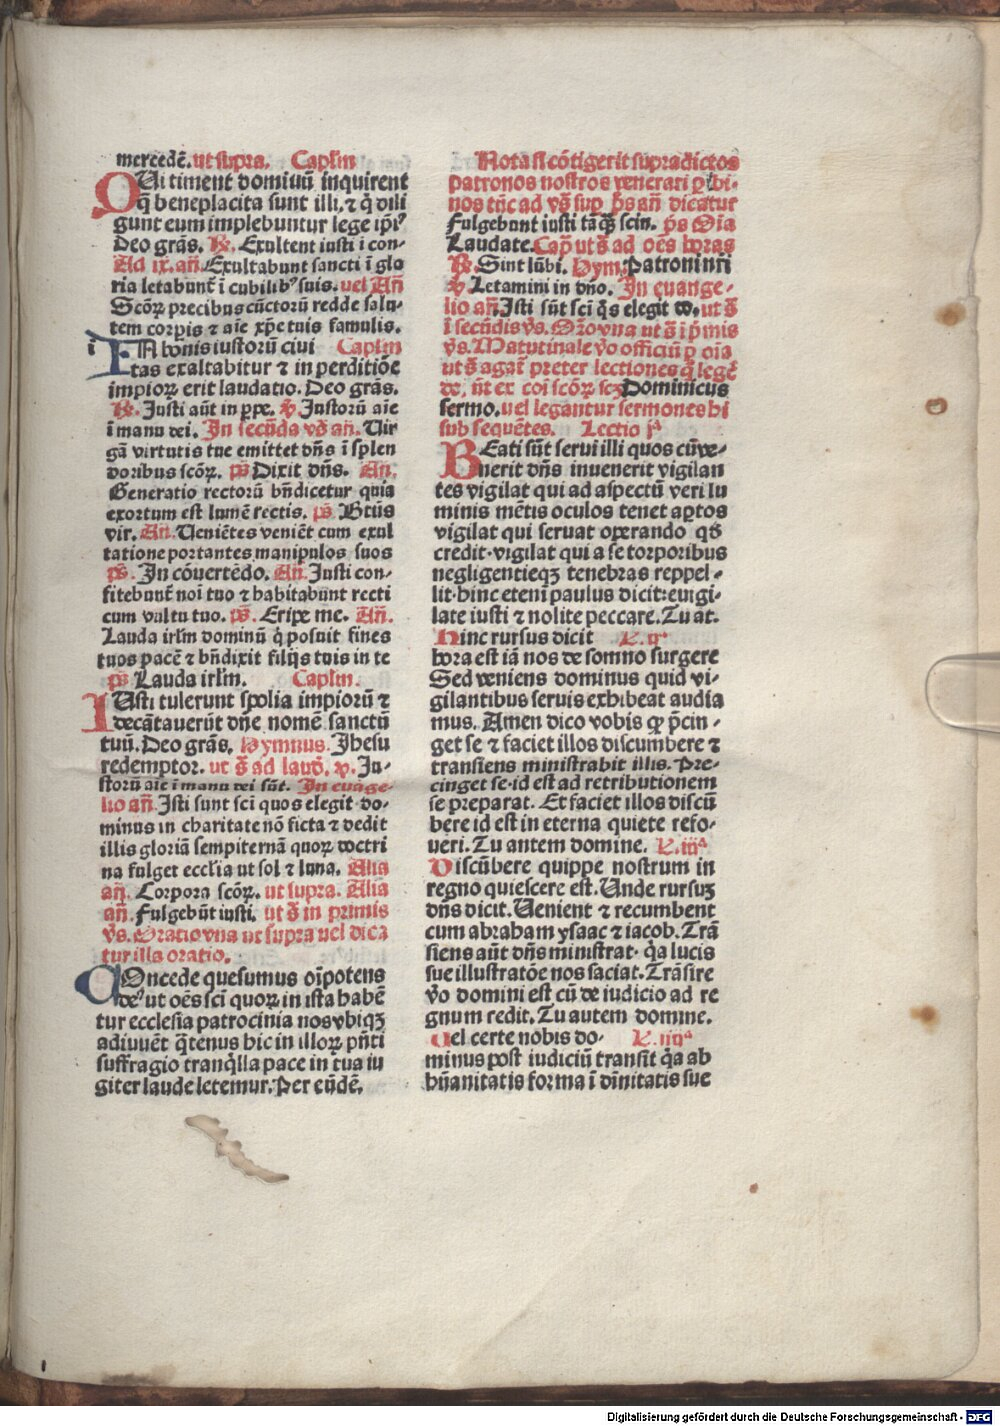 mercedē. ut supra. Caplm
QUi timent dominū inquirent
q̄ beneplacita sunt illi, ⁊ q̄ dili
gunt eum implebuntur lege ipiꝰ
Deo grās. ℟. Exultent iusti i con-
Ad ix. an̄. Exultabunt sancti ī glo
ria letabunt̄ ī cubilibꝰ suis. uel An̄
Scōꝝ precibus cūctorū redde salu-
tem corpis ⁊ aīe xp̄e tuis famulis.
IN bonis iustorū ciui Caplm
tas exaltabitur ⁊ in perditiōe
impioꝝ erit laudatio. Deo grās.
℟. Justi aūt in ppe. ℣. Justorū aīe
ī manu dei. In secūda vō an̄. Uir
gā virtutis tue emittet dn̄s ī splen
doribus scōꝝ. pṡ Dixit dn̄s. An̄.
Generatio rectorū bn̄dicetur quia
exortum est lumē rectis. pṡ. Btūs
vir. An̄. Ueniētes veniēt cum exul
tatione portantes manipulos suos
pṡ. In cōuertēdo. An̄. Justi con-
fitebunt̄ noī tuo ⁊ habitabūnt recti
cum vultu tuo. pṡ. Eripe me. An̄.
Lauda irlm dominū q̄ posuit fines
tuos pacē ⁊ bn̄dixit filijs tuis in te
pṡ Lauda irlm. Caplm.
IUsti tulerunt spolia impiorū ⁊
decātauerūt dn̄e nomē sanctū
tuū. Deo grās. Hymnus. Jhesu
redemptor. ut s̄ ad laud̄. ℣. Ju-
storū aīe ī manu dei sūt. In euāge-
lio an̄. Isti sunt scī quos elegit do-
minus in charitate nō ficta ⁊ dedit
illis gloriā sempiternā quoꝝ doctri
na fulget ecclīa ut sol ⁊ luna. Alia
an̄. Corpora scōꝝ. ut supra. Alia
an̄. Fulgebūt iusti. ut s̄ in primis
vs̄. Oratio vna ut supra uel dica
tur illa oratio.
COncede quesumus oīpotens
deꝰ ut oēs scī quoꝝ in ista habē
tur ecclesia patrocinia nos vbiqꝫ
adiuuēt q̄tenus hic in illoꝝ pn̄ti
suffragio tranq̄lla pace in tua iu
giter laude letemur. Per eūdē.
Nota si cōtigerit supradictos
patronos nostros venerari ꝑ bi-
nos tūc ad vs̄ sup p̄s an̄ dicatur
Fulgebunt iusti tāqꝫ scin. p̄s Oīa
Laudate. Cap̄ ut s̄ ad oēs horas
℟. Sint lūbi. Hym. Patroni nr̄i
℣. Letamini in dn̄o. In euange-
lio an̄ Isti sūt scī q̄s elegit do. ut s̄
ī secūdis vs̄. Orō vna ut s̄ ī p̄mis
vs̄. Matutinale vō officiū ꝑ oīa
ut s̄ agat̄ preter lectiones q̄ legēt
de, ūt ex coī scōꝝ scꝫ Dominicus
sermo. uel legantur sermones hi
sub sequētes. Lectio jᵃ
BEati sūt serui illi quos cū ve-
nerit dn̄s inuenerit vigilan
tes vigilat qui ad aspectū veri lu
minis mētis oculos tenet aptos
vigilat qui seruat operando qd̄
credit. vigilat qui a se torporibus
negligentieqꝫ tenebras reppel-
lit. hinc eteni paulus dicit: euigi-
late iusti ⁊ nolite peccare. Tu at.
Hinc rursus dicit L. ijᵃ
hora est iā nos de somno surgere
Sed veniens dominus quid vi-
gilantibus seruis exhibeat audia
mus. Amen dico vobis ꝙ p̄cin-
get se ⁊ faciet illos discumbere ⁊
transiens ministrabit illis. Pre-
cinget se. id est ad retributionem
se preparat. Et faciet illos discū
bere id est in eterna quiete refo-
ueri. Tu autem domine. L. iijᵃ
Discūbere quippe nostrum in
regno quiescere est. Unde rursuꝫ
dn̄s dicit. Uenient ⁊ recumbent
cum abraham ysaac ⁊ iacob. Trā
siens aūt dn̄s ministrat. q̄a lucis
sue illustratōe nos saciat. Trāsire
vō domini est cū de iudicio ad re
gnum redit. Tu autem domine.
Uel certe nobis do- L. iiijᵃ
minus post iudiciū transit q̄a ab
hūanitatis forma ī diuinitatis sue
Digitalisierung gefördert durch die Deutsche Forschungsgemeinschaft - DFG